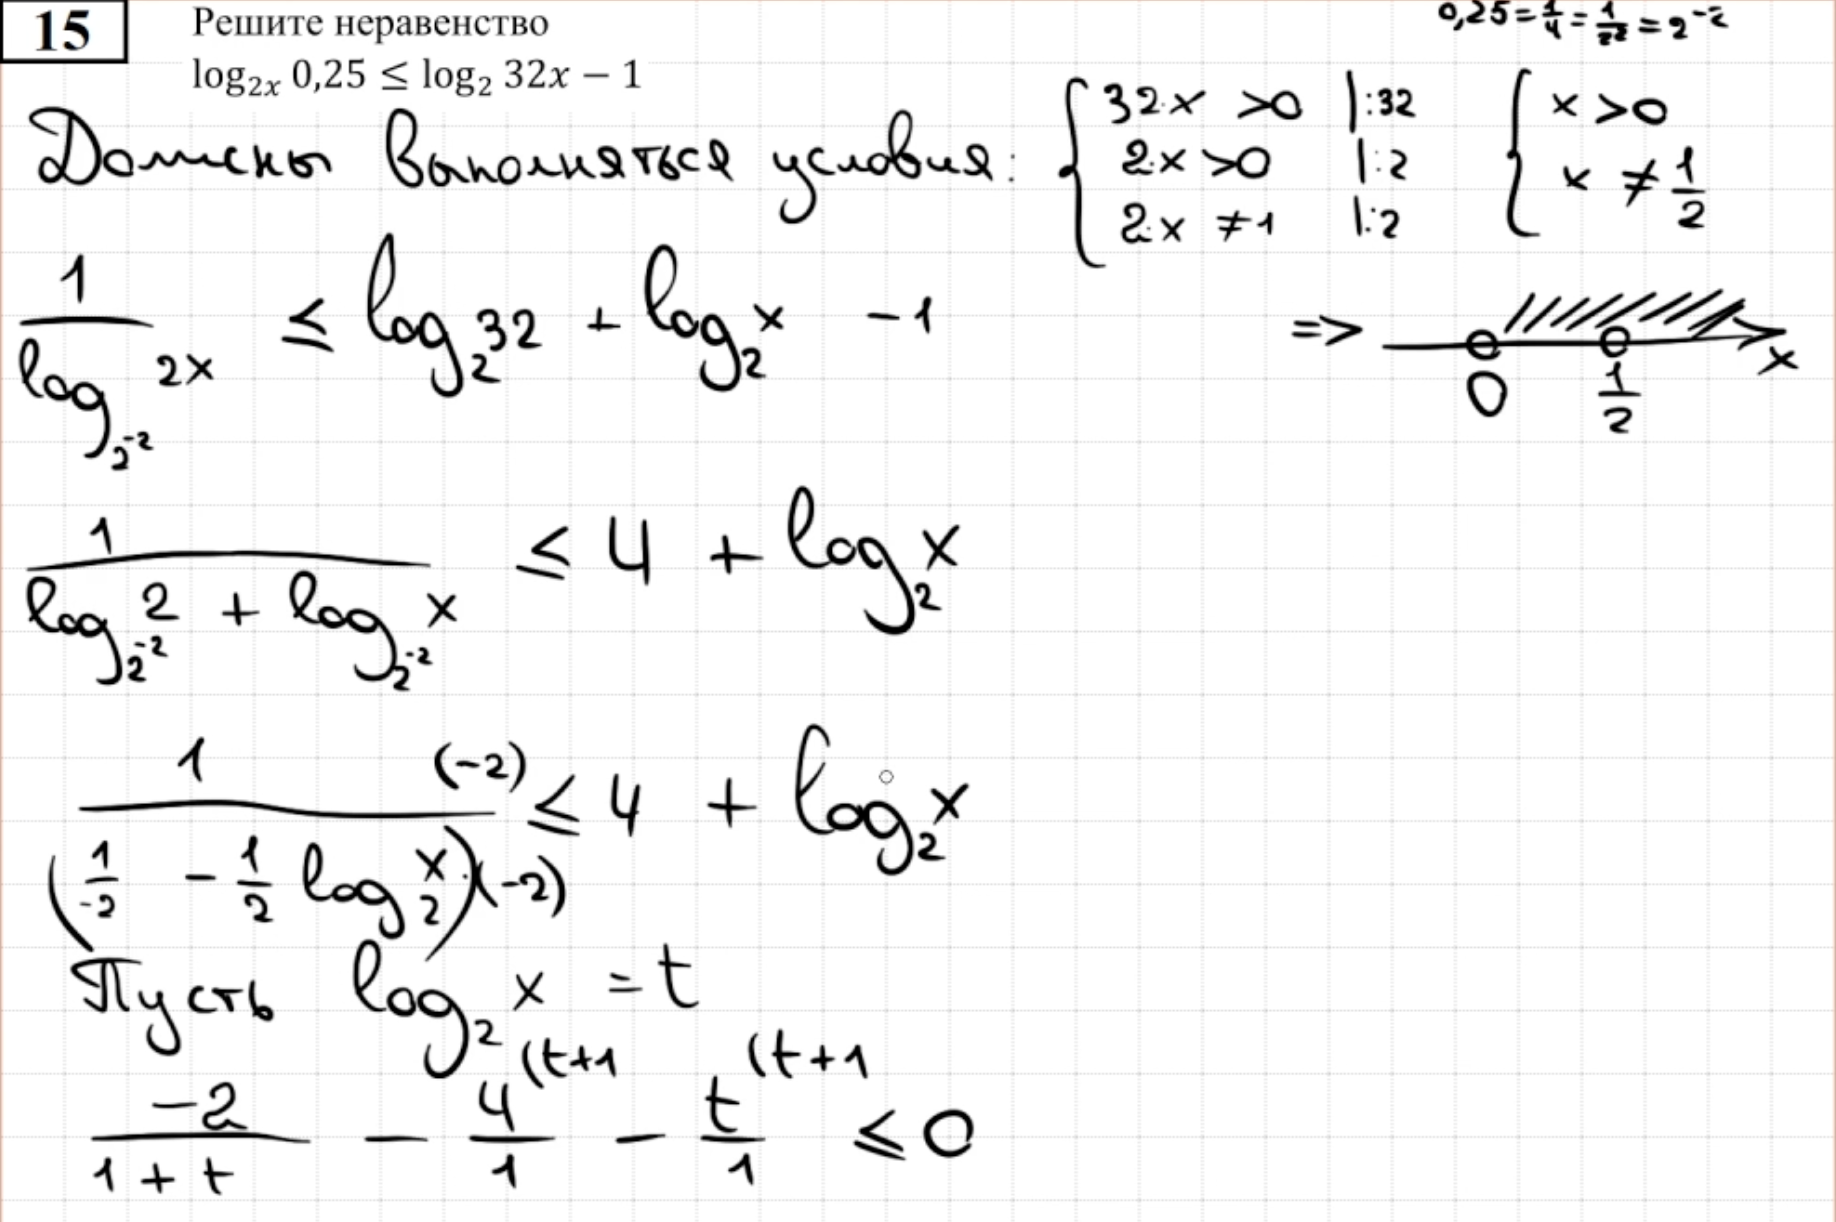 15 Решите неравенство
log₂ₓ 0,25 ≤ log₂ 32x − 1
0,25 = 1/4 = 1/2² = 2⁻²
Должны выполняться условия:
{ 32·x > 0 |:32
2·x > 0 |:2
2·x ≠ 1 |:2
{ x > 0
x ≠ 1/2
=> 0 1/2 x
1/(log_{2⁻²} 2x) ≤ log₂ 32 + log₂ x − 1
1/(log_{2⁻²} 2 + log_{2⁻²} x) ≤ 4 + log₂ x
1 (−2)/((1/−2 − 1/2 log₂ x)·(−2)) ≤ 4 + log₂ x
Пусть log₂ x = t
−2/(1 + t) − 4/1 (t+1 − t/1 (t+1 ≤ 0